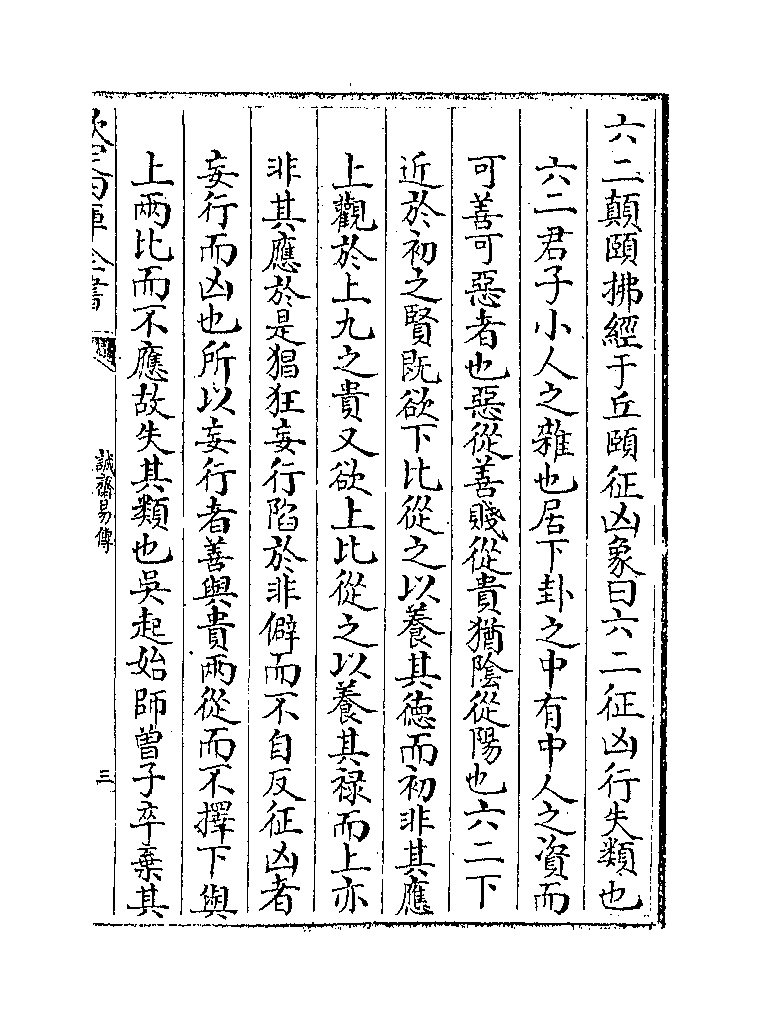 六二顛頤拂經于丘頤征凶象曰六二征凶行失類也
六二君子小人之雜也居下卦之中有中人之資而
可善可惡者也惡從善賤從貴猶陰從陽也六二下
近於初之賢既欲下比從之以養其徳而初非其應
上觀於上九之貴又欲上比從之以養其祿而上亦
非其應於是猖狂妄行陷於非僻而不自反征凶者
妄行而凶也所以妄行者善與貴兩從而不擇下與
上兩比而不應故失其類也吳起始師曽子卒棄其
欽定四庫全書
誠齋易傳
三